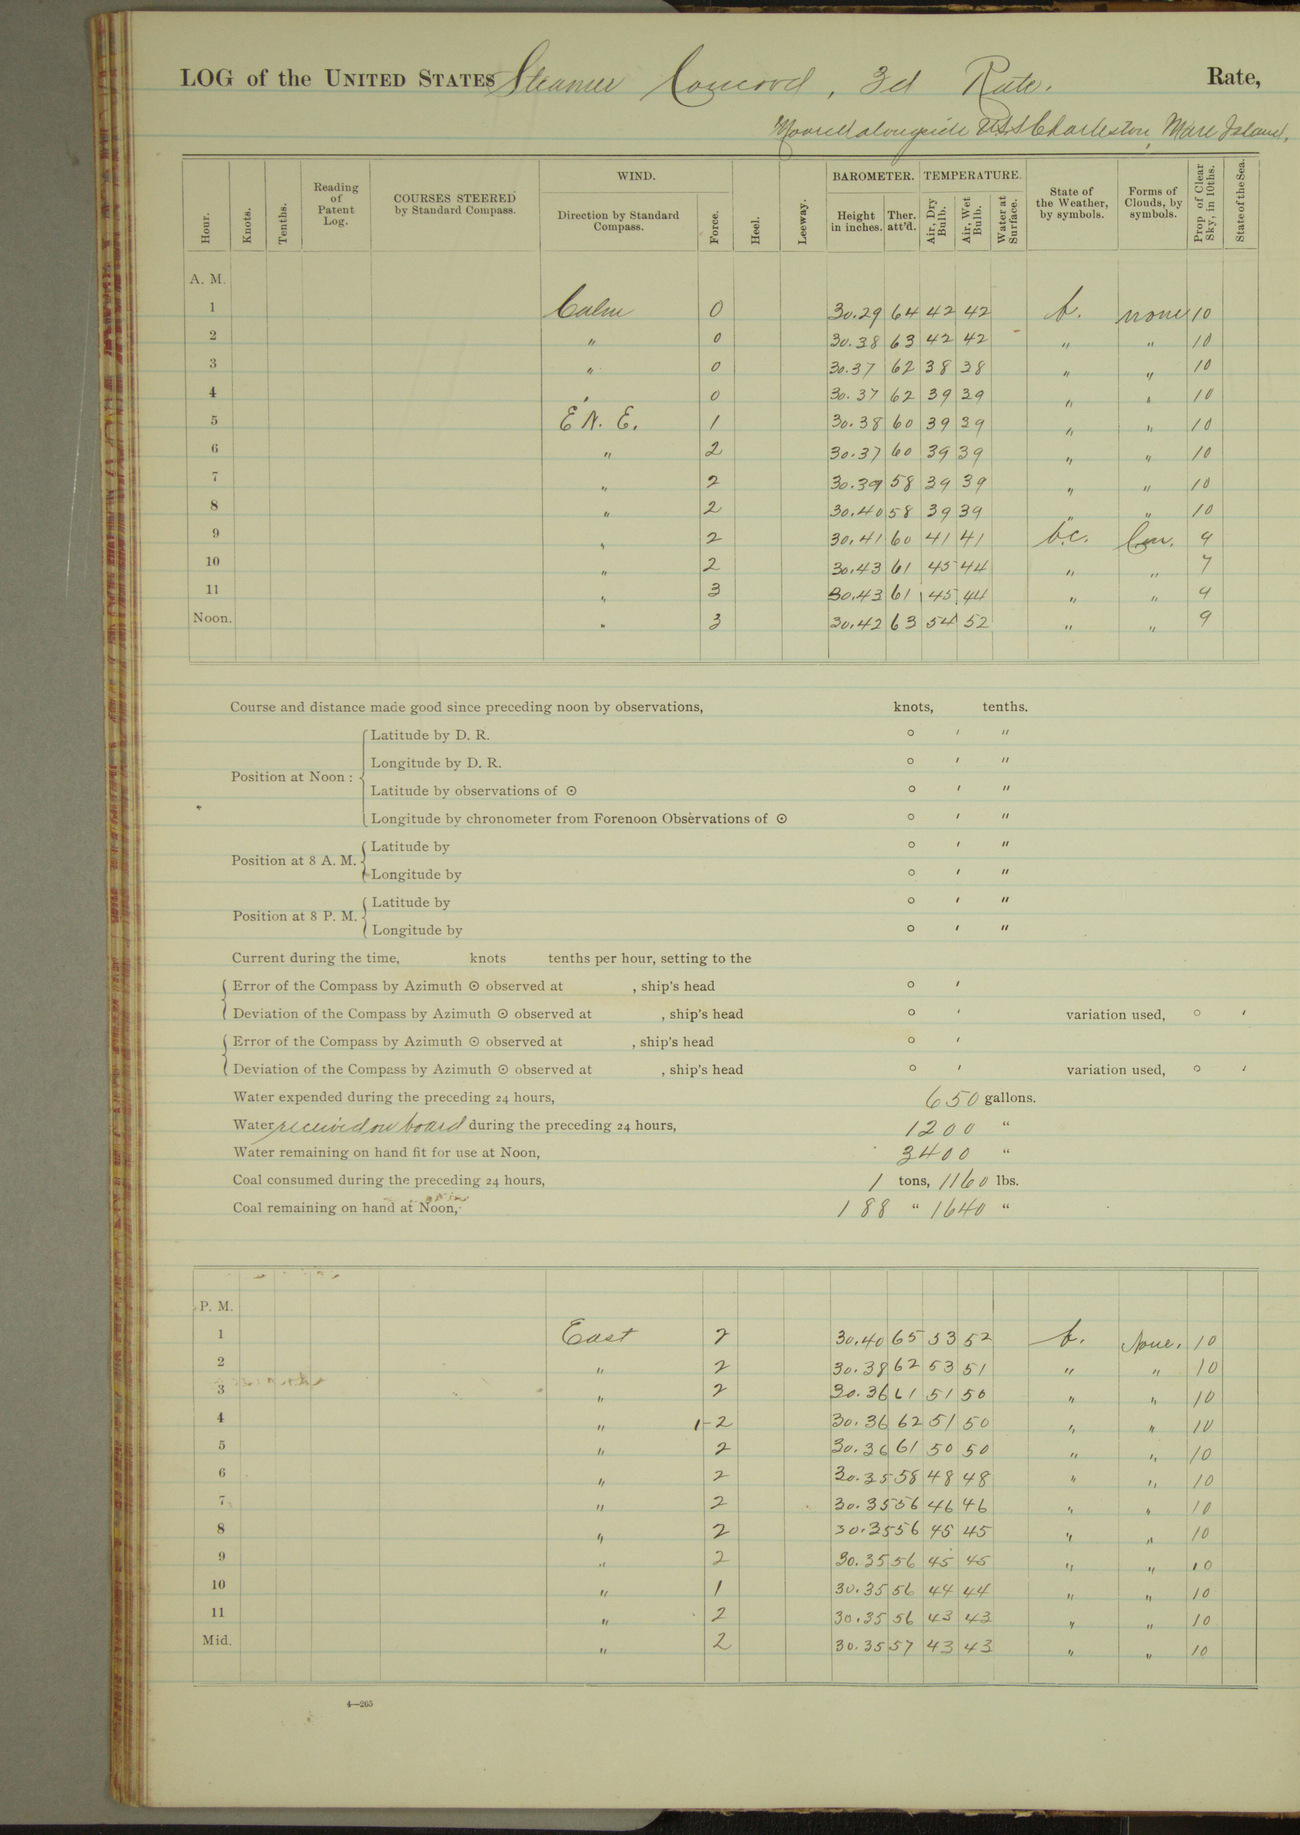 LOG of the UNITED STATES Steamer Concord, 3d Rate. Rate,
Moored alongside U.S.S. Charleston, Mare Island,
Hour. Knots. Tenths. Reading of Patent Log. COURSES STEERED by Standard Compass. WIND. Direction by Standard Compass. Force. Heel. Leeway. BAROMETER. Height in inches. Ther. att'd. TEMPERATURE. Air, Dry Bulb. Air, Wet Bulb. Water at Surface. State of the Weather, by symbols. Forms of Clouds, by symbols. Prop. of Clear Sky, in 10ths. State of the Sea.
A. M.
1 Calm 0 30.29 64 42 42 b. none 10
2 " 0 30.38 63 42 42 " " 10
3 " 0 30.37 62 38 38 " " 10
4 " 0 30.37 62 39 39 " " 10
5 E N. E. 1 30.38 60 39 39 " " 10
6 " 2 30.37 60 39 39 " " 10
7 " 2 30.39 58 39 39 " " 10
8 " 2 30.40 58 39 39 " " 10
9 " 2 30.41 60 41 41 b.c. Cu. 9
10 " 2 30.43 61 45 44 " " 7
11 " 3 30.43 61 45 44 " " 9
Noon. " 3 30.42 63 54 52 " " 9
Course and distance made good since preceding noon by observations, knots, tenths.
Position at Noon :
Latitude by D. R. ° ′ ″
Longitude by D. R. ° ′ ″
Latitude by observations of ☉ ° ′ ″
Longitude by chronometer from Forenoon Observations of ☉ ° ′ ″
Position at 8 A. M.
Latitude by ° ′ ″
Longitude by ° ′ ″
Position at 8 P. M.
Latitude by ° ′ ″
Longitude by ° ′ ″
Current during the time, knots tenths per hour, setting to the
Error of the Compass by Azimuth ☉ observed at , ship's head ° ′
Deviation of the Compass by Azimuth ☉ observed at , ship's head ° ′ variation used, ° ′
Error of the Compass by Azimuth ☉ observed at , ship's head ° ′
Deviation of the Compass by Azimuth ☉ observed at , ship's head ° ′ variation used, ° ′
Water expended during the preceding 24 hours, 650 gallons.
Water received on board during the preceding 24 hours, 1200 "
Water remaining on hand fit for use at Noon, 3400 "
Coal consumed during the preceding 24 hours, 1 tons, 1160 lbs.
Coal remaining on hand at Noon, 188 " 1640 "
P. M.
1 East 2 30.40 65 53 52 b. None. 10
2 " 2 30.38 62 53 51 " " 10
3 " 2 30.36 61 51 50 " " 10
4 " 1-2 30.36 62 51 50 " " 10
5 " 2 30.36 61 50 50 " " 10
6 " 2 30.35 58 48 48 " " 10
7 " 2 30.35 56 46 46 " " 10
8 " 2 30.35 56 45 45 " " 10
9 " 2 30.35 56 45 45 " " 10
10 " 1 30.35 56 44 44 " " 10
11 " 2 30.35 56 43 43 " " 10
Mid. " 2 30.35 57 43 43 " " 10
4—265